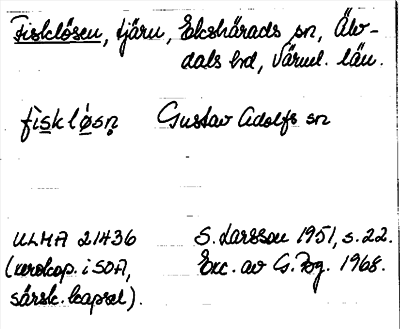 Fisklösen, tjärn, Ekshärads sn, Älv-
dals hd, Värml. län.
fisklo̗sn̥ Gustav Adolfs sn
ULMA 21436 S. Larsson 1951, s. 22.
(xerokop. i SOA, Exc. av G. Bg. 1968.
särsk. kapsel).